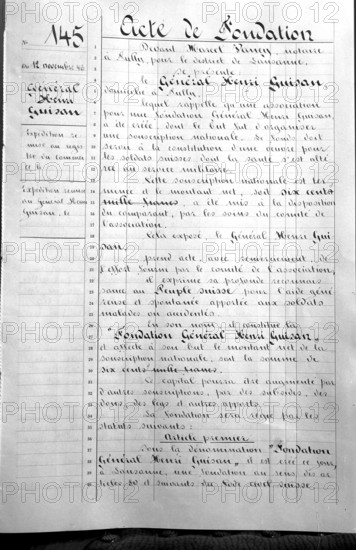 Acte de Fondation
No 145
du 12 novembre 40
Général
Henri
Guisan
Devant Marcel
notaire
à Pully, pour le district de Lausanne,
se présente
le Général Henri Guisan,
domicilié à Pully,
lequel rappelle qu'une association
pour une fondation Général Henri Guisan,
a été créée, dont le but fut d'organiser
une souscription nationale. Le fonds doit
servir à la constitution d'une oeuvre pour
les soldats suisses dont la santé s'est alté
rée au service militaire.
Cette souscription nationale est ter
minée et le montant net, soit six cents
mille francs, a été mis à la disposition
du comparant, par les soins du comité de
l'association.
Cela exposé, le Général Henri Gui
san,
prend acte, avec remerciement, de
l'effort fourni par le comité de l'association,
il exprime sa profonde reconnais
sance au Peuple suisse pour l'aide géné
reuse et spontanée apportée aux soldats
malades ou accidentés.
En son nom, il constitue la
"Fondation Général Henri Guisan"
et affecte à son but le montant net de la
souscription nationale, soit la somme de
six cents mille francs.
Le capital pourra être augmenté par
d'autres souscriptions, par des subsides, des
dons, des legs et autres apports.
La fondation sera régie par les
statuts suivants:
Article premier
Sous la dénomination "Fondation
Général Henri Guisan", il est créé ce jour,
à Lausanne, une fondation au sens des ar
ticles 80 et suivants du Code civil suisse
Expédition re
mise au regis
tre du commerce
le
Expédition remise
au Général Henri
Guisan, le